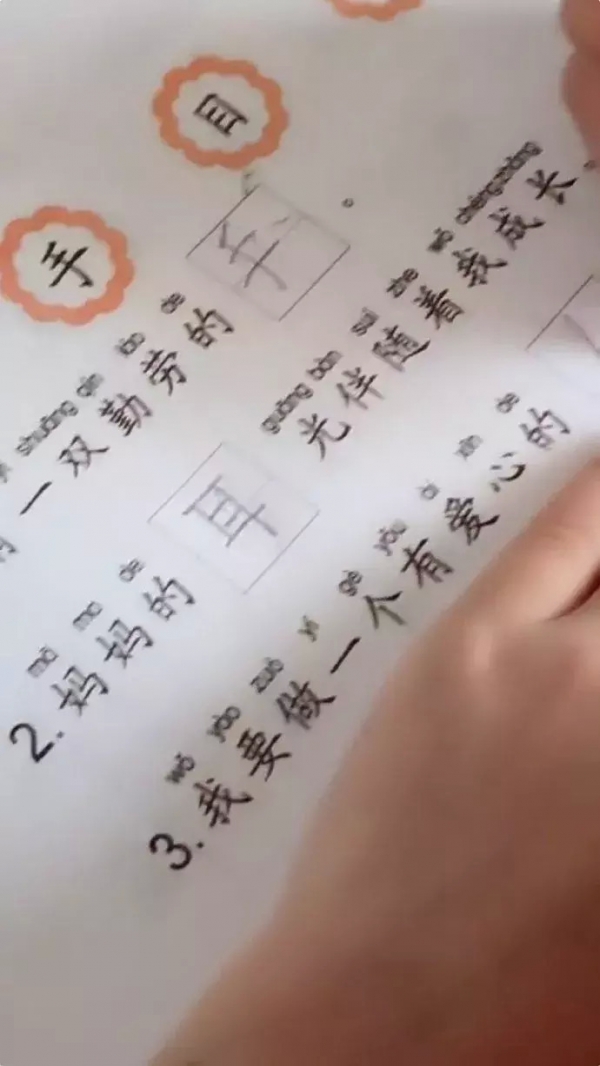 手 目
shuāng qín láo de
一双勤劳的手。
mā ma de guāng bàn suí zhe wǒ chéngzhǎng
2.妈妈的耳光伴随着我成长。
wǒ yào zuò yí gè yǒu ài xīn de
3.我要做一个有爱心的